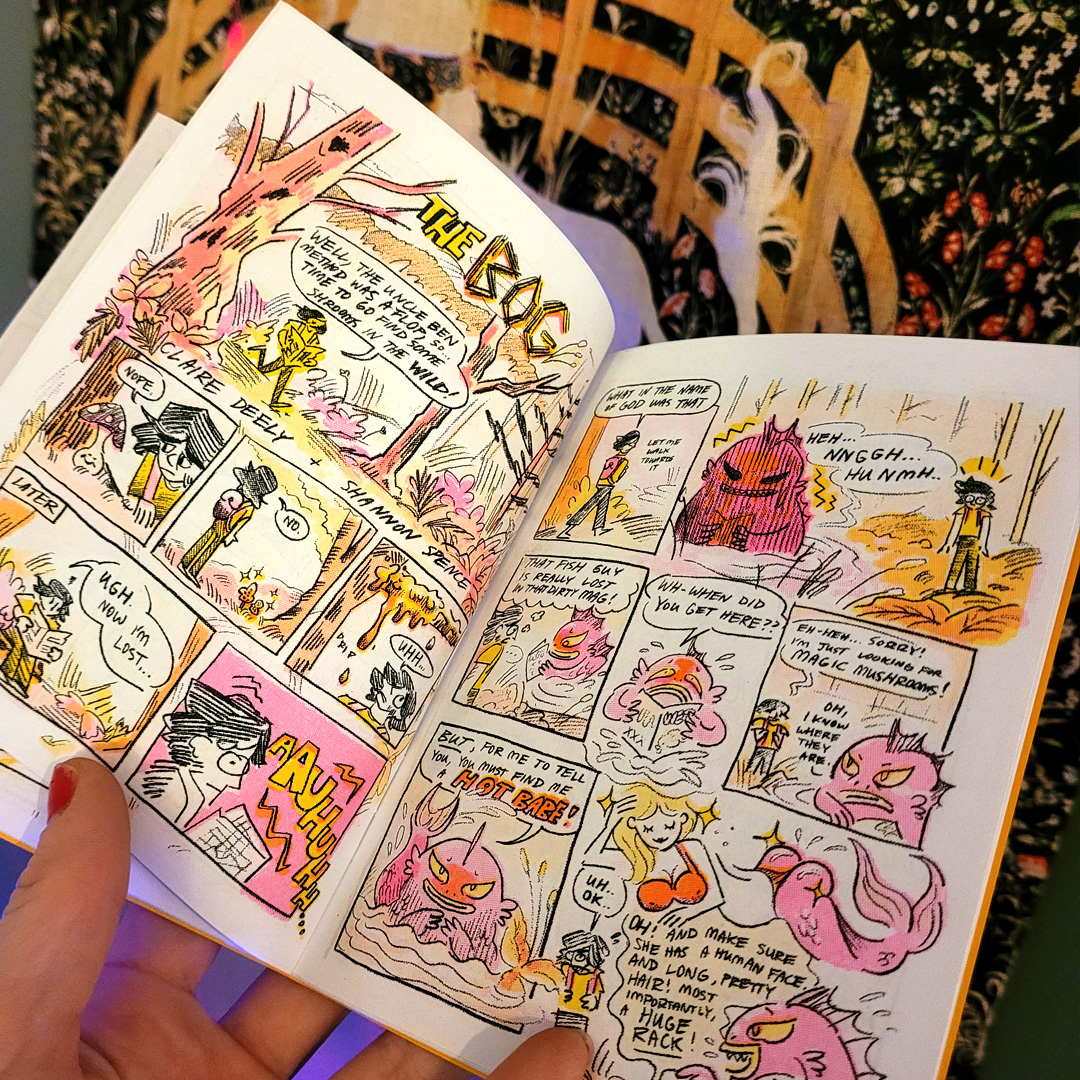 THE BOG
WELL, THE UNCLE BEN
METHOD WAS A FLOP, SO...
TIME TO GO FIND SOME
SHROOMS IN THE WILD!
CLAIRE DEELY
+
SHANNON SPENCE
NOPE.
NO.
UHH...
LATER
UGH.
NOW I'M
LOST...
AAUHUHUHH....
WHAT IN THE NAME
OF GOD WAS THAT
LET ME
WALK
TOWARDS
IT
HEH...
NNGGH...
HUNMH..
THAT FISH GUY
IS REALLY LOST
IN THAT DIRTY MAG!
WH-WHEN DID
YOU GET HERE??
XXX
EH-HEH... SORRY!
I'M JUST LOOKING FOR
MAGIC MUSHROOMS!
OH,
I KNOW
WHERE
THEY
ARE.
BUT, FOR ME TO TELL
YOU, YOU MUST FIND ME
A HOT BABE!
UH.
OK.
OH! AND MAKE SURE
SHE HAS A HUMAN FACE,
AND LONG, PRETTY
HAIR! MOST
IMPORTANTLY,
A HUGE
RACK!